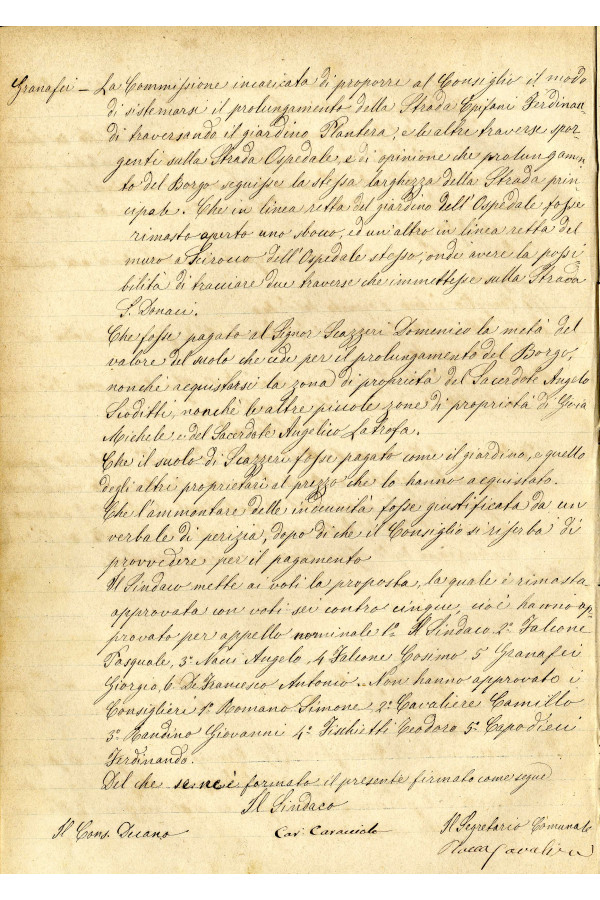 Granafei — La Commissione incaricata di proporre al Consiglio il modo
di sistemarsi il prolungamento della Strada Epifani Ferdinan-
di traversando il giardino Plantera, e le altre traverse spor-
genti sulla Strada Ospedale, e di opinione che prolungamen-
to del Borgo seguisse la stessa larghezza della Strada prin-
cipale. Che in linea retta del giardino dell'Ospedale fosse
rimasto aperto uno sbocco, ed un'altro in linea retta del
muro a Scirocco dell'Ospedale stesso, onde avere la possi
bilità di tracciare due traverse che immettesse sulla Strada
S. Donaci.
Che fosse pagato al Signor Scazzeri Domenico la metà del
valore del suolo che cede per il prolungamento del Borgo,
nonchè acquistarsi la zona di proprietà del Sacerdote Angelo
Scoditti, nonchè le altre piccole zone di proprietà di
Michele e del Sacerdote Angelico Latrofa.
Che il suolo di Scazzeri fosse pagato come il giardino, e quello
degli altri proprietari al prezzo che lo hanno acquistato.
Che l'ammontare delle indennità fosse giustificata da un
verbale di perizia, dopo di che il Consiglio si riserba di
provvedere per il pagamento
Il Sindaco mette ai voti la proposta, la quale è rimasta
approvata con voti sei contro cinque, cioè hanno ap-
provato per appello nominale 1° Il Sindaco 2° Falcone
Pasquale, 3° Nacci Angelo, 4 Falcone Cosimo 5 Granafei
Giorgio, 6 De Francesco Antonio. Non hanno approvato i
Consiglieri 1° Romano Simone, 2° Cavaliere Camillo
3° Bandino Giovanni 4° Fischietti Teodoro 5° Capodieci
Ferdinando.
Del che se ne è formato il presente firmato come segue
Il Sindaco
Il Cons. Decano Cav. Caracciolo Il Segretario Comunale
Cavaliere